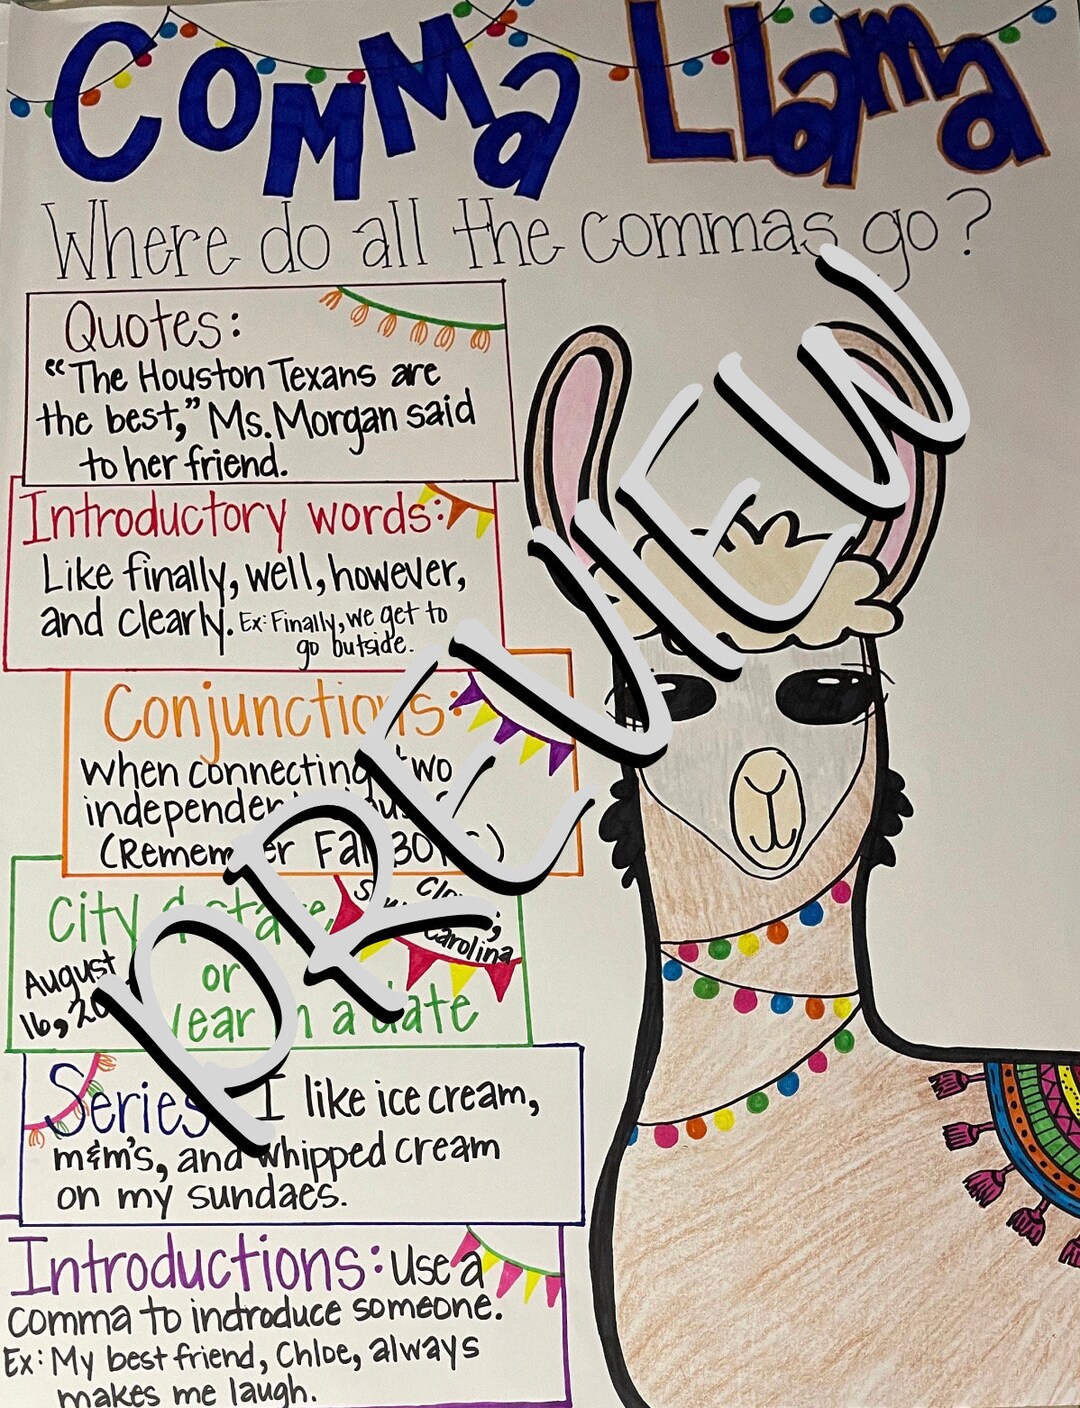 Comma Llama
Where do all the commas go?
Quotes:
"The Houston Texans are
the best," Ms. Morgan said
to her friend.
Introductory words:
Like finally, well, however,
and clearly. Ex: Finally, we get to
go outside.
Conjunctions:
when connecting two
independent
(Remember
City state,
or
Year in a date
August
16,
Carolina
Series I like ice cream,
m&m's, and whipped cream
on my sundaes.
Introductions: Use a
comma to indroduce someone.
Ex: My best friend, Chloe, always
makes me laugh.
PREVIEW